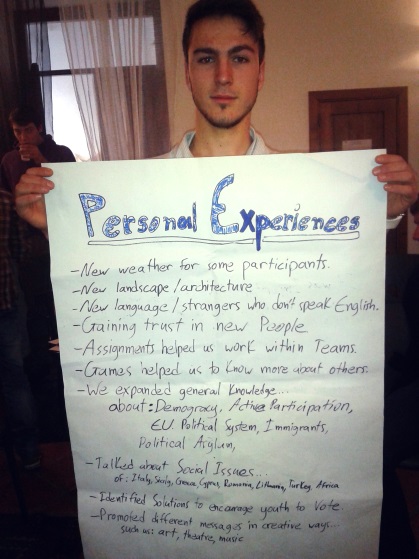 Personal Experiences
- New weather for some participants.
- New landscape/architecture
- New language/strangers who don't speak English.
- Gaining trust in new People
- Assignments helped us work within Teams.
- Games helped us to Know more about others.
- We expanded general Knowledge...
about: Democracy, Active Participation,
EU Political System, Immigrants,
Political Asylum,
- Talked about Social Issues...
of: Italy, Sicily, Greece, Cyprus, Romania, Lithuania, Turkey, Africa
- Identified Solutions to encourage youth to Vote
- Promoted different messages in creative ways...
such us: art, theatre, music